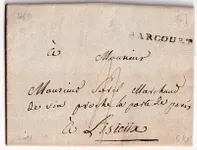 HARCOURT
à
Monsieur
Monsieur Marchand
de vin proche la porte de paris
a Lisieux